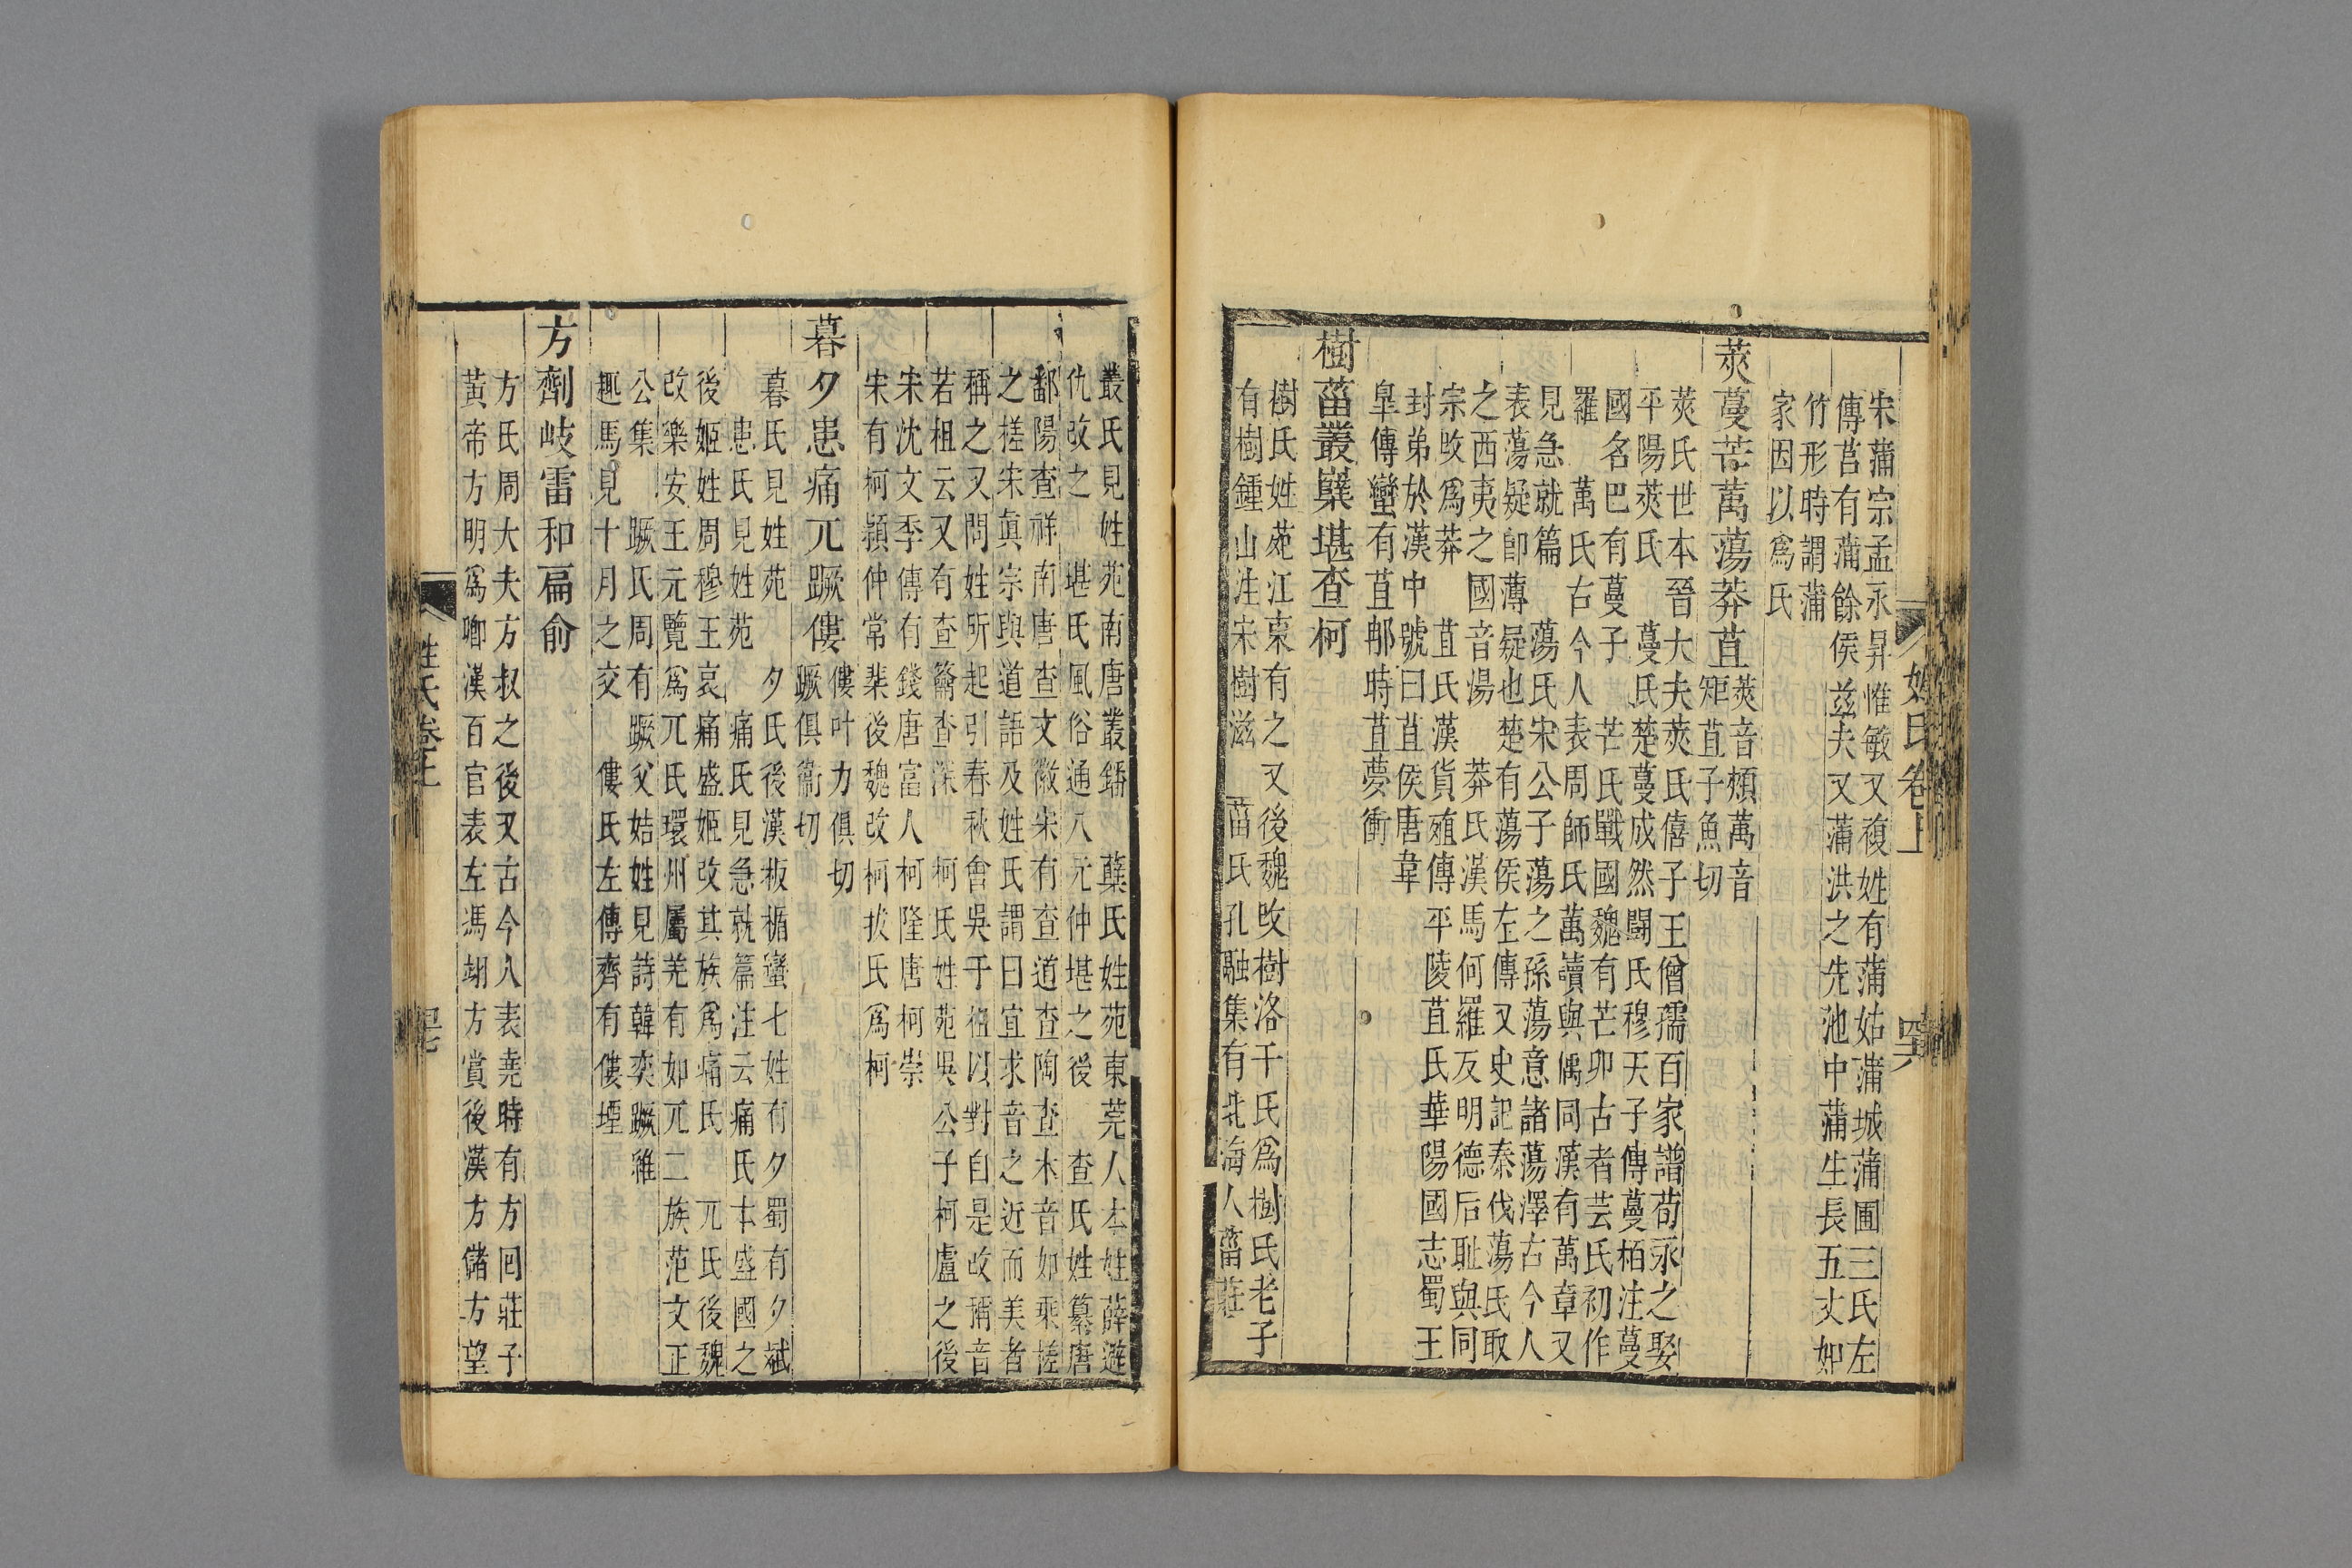 姓氏卷上
四六
宋蒲宗孟永昇惟敏又複姓有蒲姑蒲城蒲圃三氏左
傳莒有蒲餘侯兹夫又蒲洪之先池中蒲生長五丈如
竹形時謂蒲
家因以爲氏
莢蔓芒萬蕩莽苴
莢音頰萬音
矩苴子魚切
莢氏世本晉大夫莢氏僖子王僧孺百家譜荀永之娶
平陽莢氏　蔓氏楚蔓成然鬪氏穆天子傳蔓栢注蔓
國名巴有蔓子　芒氏戰國魏有芒卯古者芸氏初作
羅　萬氏古今人表周師氏萬讀與偊同漢有萬章又
見急就篇　蕩氏宋公子蕩之孫蕩意諸蕩澤古今人
表蕩疑卽薄疑也楚有蕩侯左傳又史記秦伐蕩氏取
之西夷之國音湯　莽氏漢馬何羅反明德后耻與同
宗改爲莽　苴氏漢貨殖傳平陵苴氏華陽國志蜀王
封弟於漢中號曰苴侯唐韋
臯傳蠻有苴䣕時苴夢衝
樹菑叢櫱堪查柯
樹氏姓苑江東有之又後魏改樹洛干氏爲樹氏老子
有樹鍾山注宋樹滋　菑氏孔融集有北海人菑莊
叢氏見姓苑南唐叢鐇　蘖氏姓苑東莞人本姓薛避
仇改之　堪氏風俗通八元仲堪之後　查氏姓纂唐
鄱陽查祥南唐查文徽宋有查道查陶查本音如乘槎
之槎宋眞宗與道語及姓氏謂曰宜求音之近而美者
稱之又問姓所起引春秋會吳于柤以對自是改稱音
若柤云又有查籥查深　柯氏姓苑吳公子柯盧之後
宋沈文季傳有錢唐富人柯隆唐柯崇
宋有柯頴仲常棐後魏改柯拔氏爲柯
暮夕患痛兀蹶僂
僂叶力俱切
蹶俱衞切
暮氏見姓苑　夕氏後漢板楯蠻七姓有夕蜀有夕斌
患氏見姓苑　痛氏見急就篇注云痛氏本盛國之
後姬姓周穆王哀痛盛姬改其族爲痛氏　兀氏後魏
改樂安王元覽爲兀氏環州屬羌有如兀二族范文正
公集　蹶氏周有蹶父姞姓見詩韓奕蹶維
趣馬見十月之交　僂氏左傳齊有僂堙
方劑岐雷和扁俞
方氏周大夫方叔之後又古今人表堯時有方回莊子
黃帝方明爲御漢百官表左馮翊方賞後漢方儲方望
姓氏卷上
四七